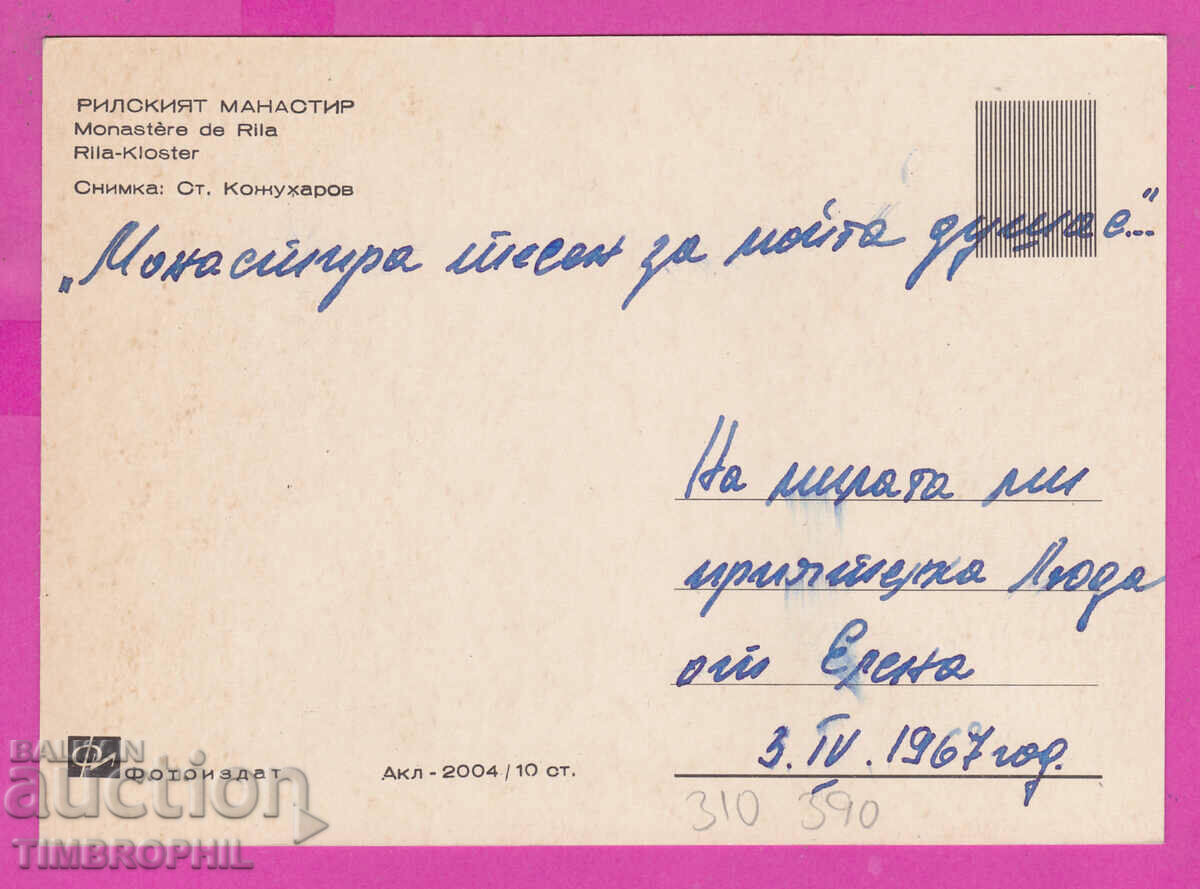 РИЛСКИЯТ МАНАСТИР
Monastère de Rila
Rila-Kloster
Снимка: Ст. Кожухаров
„Монастира тесен за мойта душа е..."
На милата ми
приятелка Люда
от Елена
3. IV. 1967 год.
Фотоиздат
Акл - 2004 / 10 ст.
310 390
BALKAN
auction
TIMBROPHIL